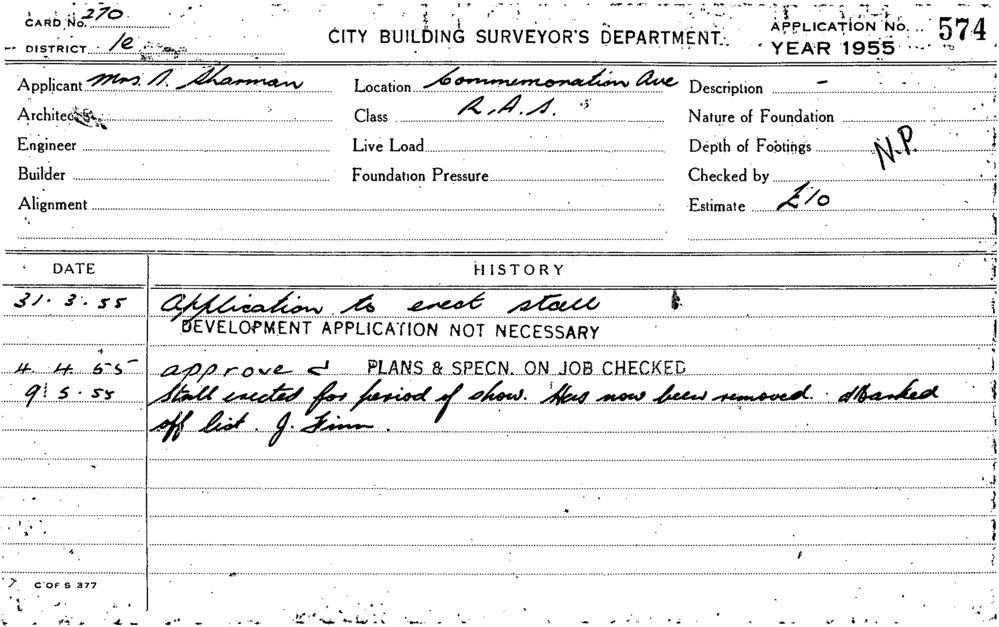 CARD No. 270
DISTRICT 1e
CITY BUILDING SURVEYOR'S DEPARTMENT.
APPLICATION No. 574
YEAR 1955
Applicant Mrs. N. Sharman
Location Commemoration Ave
Description -
Architect
Class R.A.S.
Nature of Foundation
Engineer
Live Load
Depth of Footings
N.P.
Builder
Foundation Pressure
Checked by
Alignment
Estimate £10
DATE HISTORY
31. 3. 55 Application to erect stall
DEVELOPMENT APPLICATION NOT NECESSARY
4. 4. 55 approved PLANS & SPECN. ON JOB CHECKED
9. 5. 55 Stall erected for period of show. Has now been removed. Marked
off list. J. Finn.
C OF S 377